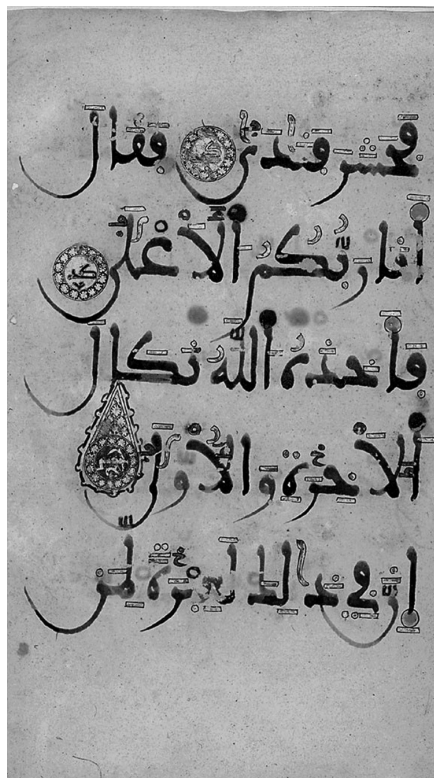 فحشر فنادى فقال
أنا ربكم الأعلى
فأخذه الله نكال
الآخرة والأولى
إن في ذلك لعبرة لمن